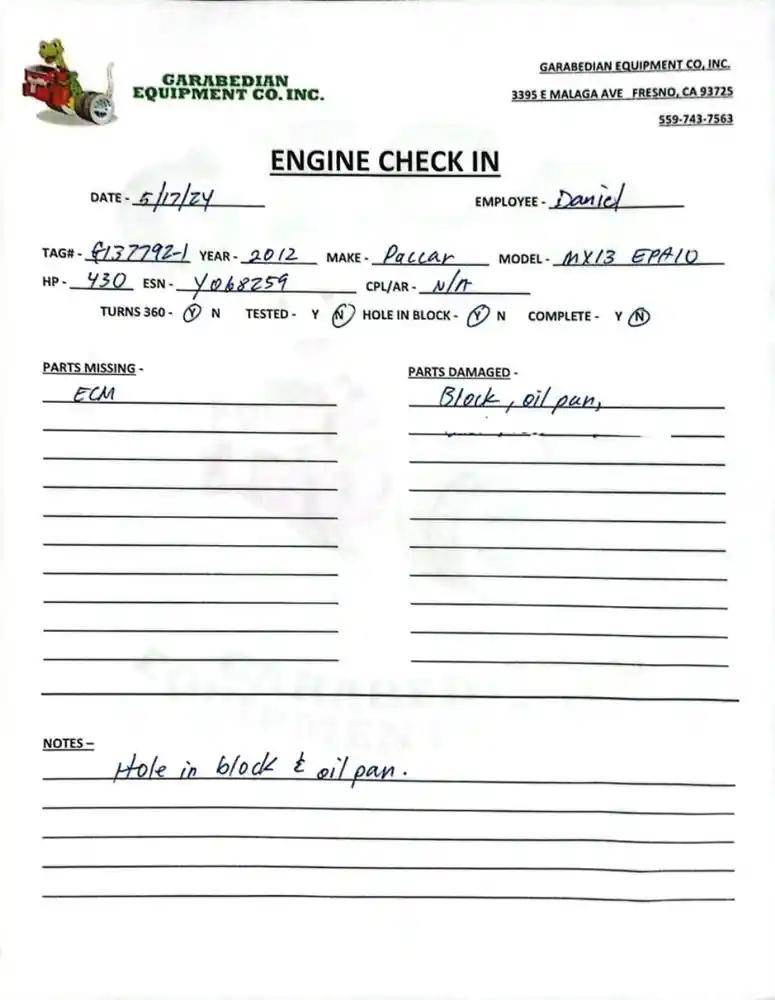 GARABEDIAN
EQUIPMENT CO. INC.
GARABEDIAN EQUIPMENT CO, INC.
3395 E MALAGA AVE FRESNO, CA 93725
559-743-7563
ENGINE CHECK IN
DATE - 5/17/24 EMPLOYEE - Daniel
TAG# - 137792-1 YEAR - 2012 MAKE - Paccar MODEL - MX13 EPA10
HP - 430 ESN - Y068259 CPL/AR - N/A
TURNS 360 - Y N TESTED - Y N HOLE IN BLOCK - Y N COMPLETE - Y N
PARTS MISSING -
ECM
PARTS DAMAGED -
Block, oil pan,
NOTES –
Hole in block & oil pan.